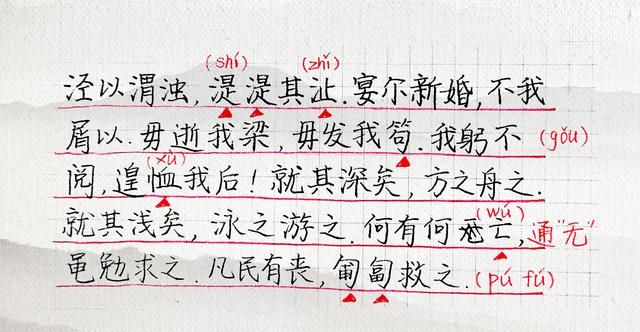 (shí) (zhǐ)
泾以渭浊,湜湜其沚.宴尔新婚,不我
屑以.毋逝我梁,毋发我笱.我躬不 (gǒu)
(xù)
阅,遑恤我后!就其深矣,方之舟之.
就其浅矣,泳之游之.何有何亡,通"无"
(wú)
黾勉求之.凡民有丧,匍匐救之.(pú fú)